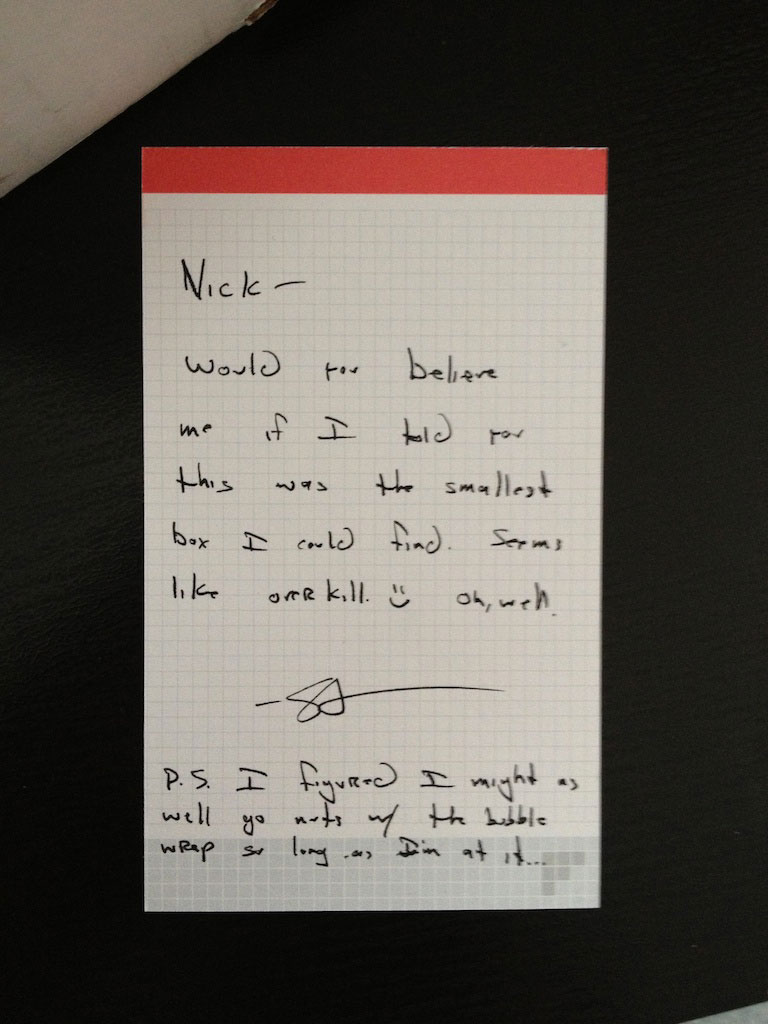 Nick —
Would you believe
me if I told you
this was the smallest
box I could find. Seems
like overkill. :) Oh, well.
P.S. I figured I might as
well go nuts w/ the bubble
wrap so long as I'm at it...